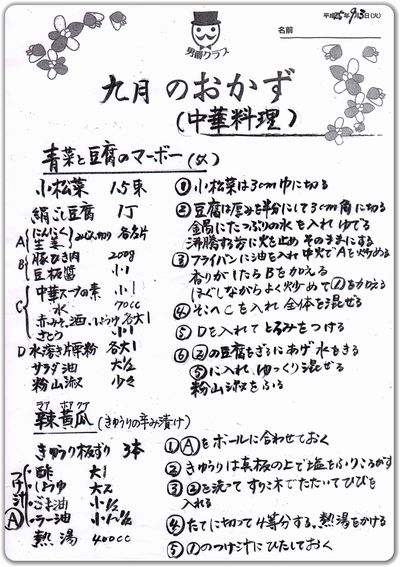 平成25年9月3日(火)
男爵クラブ
名前
九月のおかず
(中華料理)
青菜と豆腐のマーボー(4人)
小松菜 1.5束
絹ごし豆腐 1丁
A にんにく 生姜 みじん切り 各1片
B 豚ひき肉 200g
豆板醤 小1
C 中華スープの素 小1
水 70cc
赤みそ、酒、しょうゆ 各大1
さとう 小1
D 水溶き片栗粉 各大1
サラダ油 大1/2
粉山淑 少々
① 小松菜は3cm巾に切る
② 豆腐は厚みを半分にして3cm角に切る
鍋にたっぷりの水を入れ ゆでる
沸騰する前に火を止め そのままにする
③ フライパンに油を入れ 中火でAを炒める
香りがしたらBを加える
ほぐしながらよく炒めて①を加える
④ そこへCを入れ 全体を混ぜる
⑤ Dを入れて とろみをつける
⑥ ②の豆腐をざるにあげ 水をきる
⑤に入れ、ゆっくり混ぜる
粉山淑をふる
マア ホアグア
辣黄瓜 (きゅうりの辛み漬け)
きゅうり 板ずり 3本
つけ汁
酢 大1
しょうゆ 大2
ごま油 小1/2
Ⓐ ラー油
熱湯 400cc
① Ⓐをボールに合わせておく
② きゅうりは真板の上で塩をふりころがす
③ ②を洗って すりこ木でたたいてひびを
入れる
④ たてに切って4等分する、熱湯をかける
⑤ ①のつけ汁にひたしておく